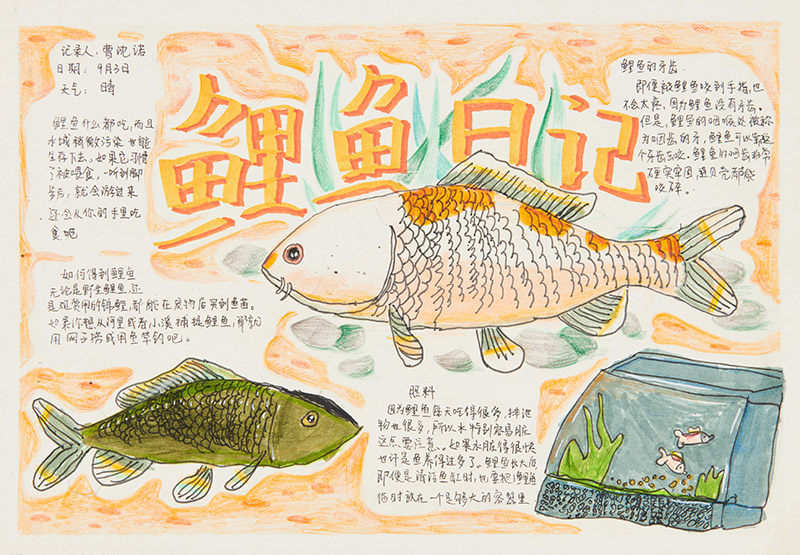 鲤鱼日记
记录人:曹沌诺
日期: 9月3日
天气: 晴
鲤鱼什么都吃,而且
水域稍微污染也能
生存下去。如果它习惯
了被喂食,一听到脚
步声,就会游过来
还会从你的手里吃
食吧
如何得到鲤鱼
无论是野生鲤鱼,还
是观赏用的锦鲤,都能在宠物店买到鱼苗。
如果你想从河里或者小溪捕捉鲤鱼,那就
用网子捞或用鱼竿钓吧。
鲤鱼的牙齿
即便被鲤鱼咬到手指,也
不会大疼,因为鲤鱼没有牙齿。
但是,鲤鱼的咽喉处被称
为咽齿的牙,鲤鱼可以靠这
个牙齿去咬。鲤鱼的咽齿非常
硬实牢固,连贝壳都能
咬碎。
照料
因为鲤鱼每天吃得很多,排泄
物也很多,所以水特别容易脏
这点要注意。如果水脏得很快
也许是鱼养得过多了。鲤鱼长大后
即便是清洁鱼缸时,也要把鲤鱼
临时放在一个足够大的容器里